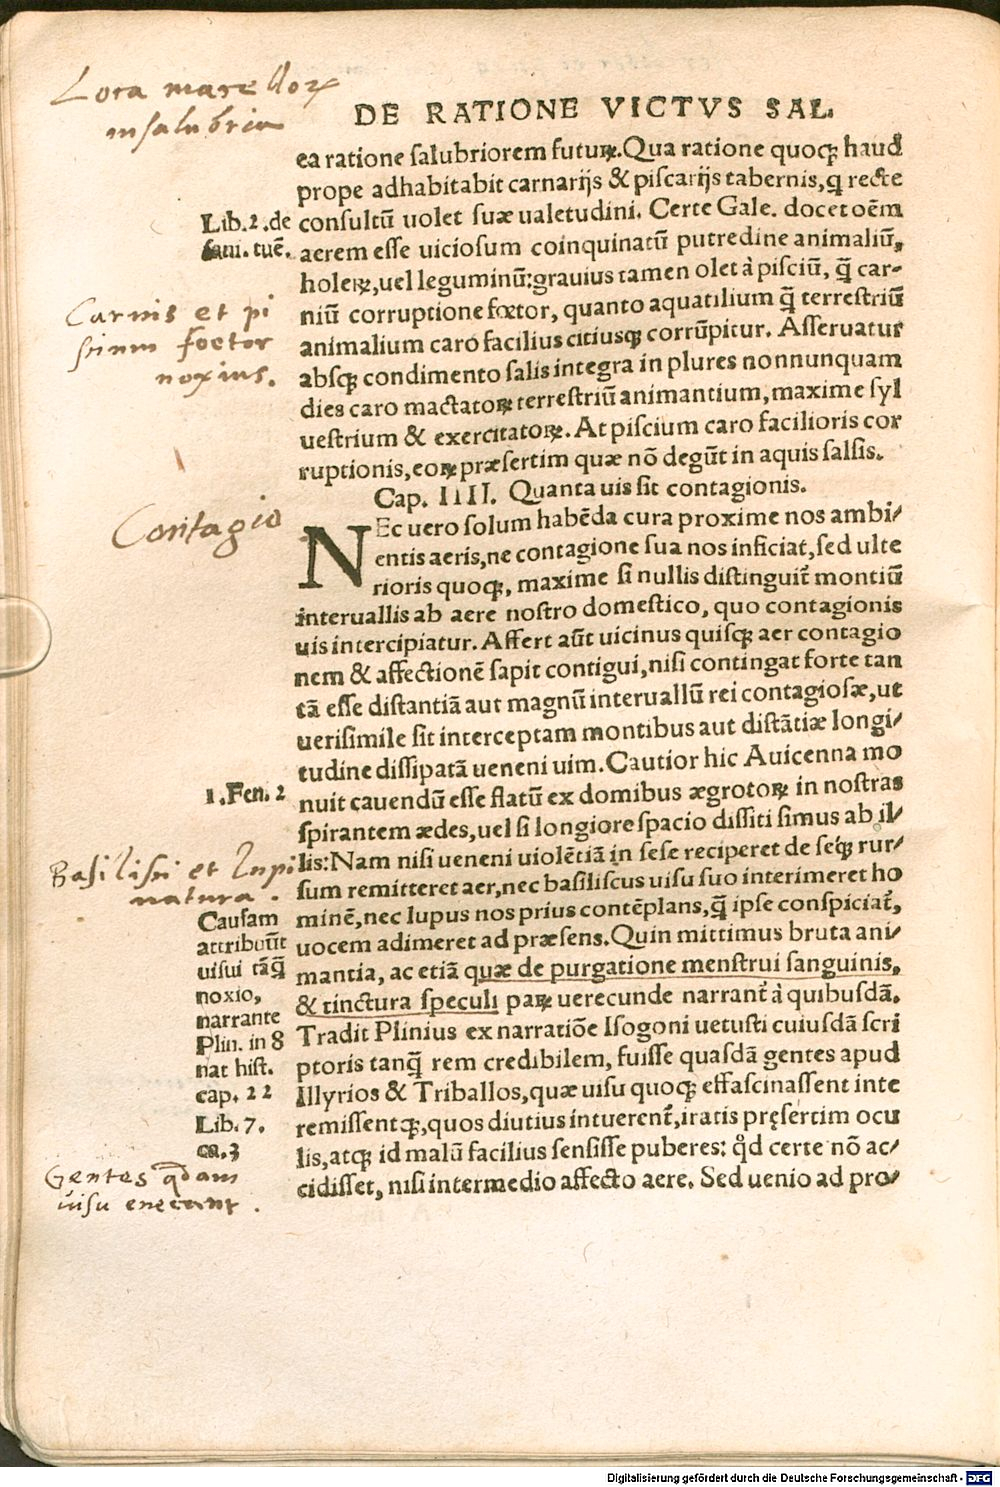 Loca macelloꝝ
insalubria
DE RATIONE VICTVS SAL.
ea ratione salubriorem futuꝝ. Qua ratione quoqꝫ haud
prope adhabitabit carnarijs & piscarijs tabernis, q̨ recte
Lib. 2. de
sani. tuē.
consultū uolet suæ ualetudini. Certe Gale. docet oēm
aerem esse uiciosum coinquinatū putredine animaliū,
holeꝝ, uel leguminū: grauius tamen olet à pisciū, q̄ car-
Carnis et pi
scium foetor
noxius.
niū corruptione fœtor, quanto aquatilium q̄ terrestriū
animalium caro facilius citiusqꝫ corrūpitur. Asseruatur
absqꝫ condimento salis integra in plures nonnunquam
dies caro mactatoꝝ terrestriū animantium, maxime syl
uestrium & exercitatoꝝ. At piscium caro facilioris cor
ruptionis, eoꝝ præsertim quæ nō degūt in aquis salsis.
Cap. IIII. Quanta uis sit contagionis.
Contagio
NEc uero solum habēda cura proxime nos ambi/
entis aeris, ne contagione sua nos inficiat, sed ulte
rioris quoqꝫ, maxime si nullis distinguit̃ montiū
interuallis ab aere nostro domestico, quo contagionis
uis intercipiatur. Affert aūt uicinus quisqꝫ aer contagio
nem & affectionē sapit contigui, nisi contingat forte tan
tā esse distantiā aut magnū interuallū rei contagiosæ, ut
uerisimile sit interceptam montibus aut distātiæ longi/
tudine dissipatā ueneni uim. Cautior hic Auicenna mo
1. Fen. 2
nuit cauendū esse flatū ex domibus ægrotoꝝ in nostras
spirantem ædes, uel si longiore spacio dissiti simus ab il/
Basilisci et lupi
natura.
lis: Nam nisi ueneni uiolētiā in sese reciperet de seq̃ꝫ rur/
sum remitteret aer, nec basiliscus uisu suo interimeret ho
Causam
attribuūt
uisui tāq̄
noxio,
narrante
Plin. in 8
nat hist.
cap. 22
Lib. 7.
ca. 3
minē, nec lupus nos prius contēplans, q̄ ipse conspiciat̃,
uocem adimeret ad præsens. Quin mittimus bruta ani/
mantia, ac etiā quæ de purgatione menstrui sanguinis,
& tinctura speculi paꝝ uerecunde narrant̃ à quibusdā.
Tradit Plinius ex narratiōe Isogoni uetusti cuiusdā scri
ptoris tanq̄ rem credibilem, fuisse quasdā gentes apud
Illyrios & Triballos, quæ uisu quoqꝫ effascinassent inte
remissentqꝫ, quos diutius intuerent̃, iratis pręsertim ocu
Gentes q̄dam
uisu enecant.
lis, atqꝫ id malū facilius sensisse puberes: qd̉ certe nō ac/
cidisset, nisi intermedio affecto aere. Sed uenio ad pro/
Digitalisierung gefördert durch die Deutsche Forschungsgemeinschaft - DFG